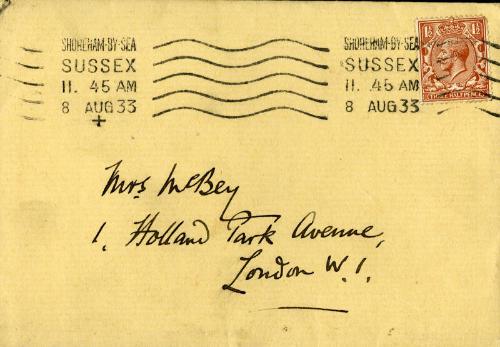 SHOREHAM-BY-SEA
SUSSEX
11. 45 AM
8 AUG 33
SHOREHAM-BY-SEA
SUSSEX
11. 45 AM
8 AUG 33
1½ 1½
THREE HALFPENCE
Mrs McBey
1. Holland Park Avenue,
London W.1.